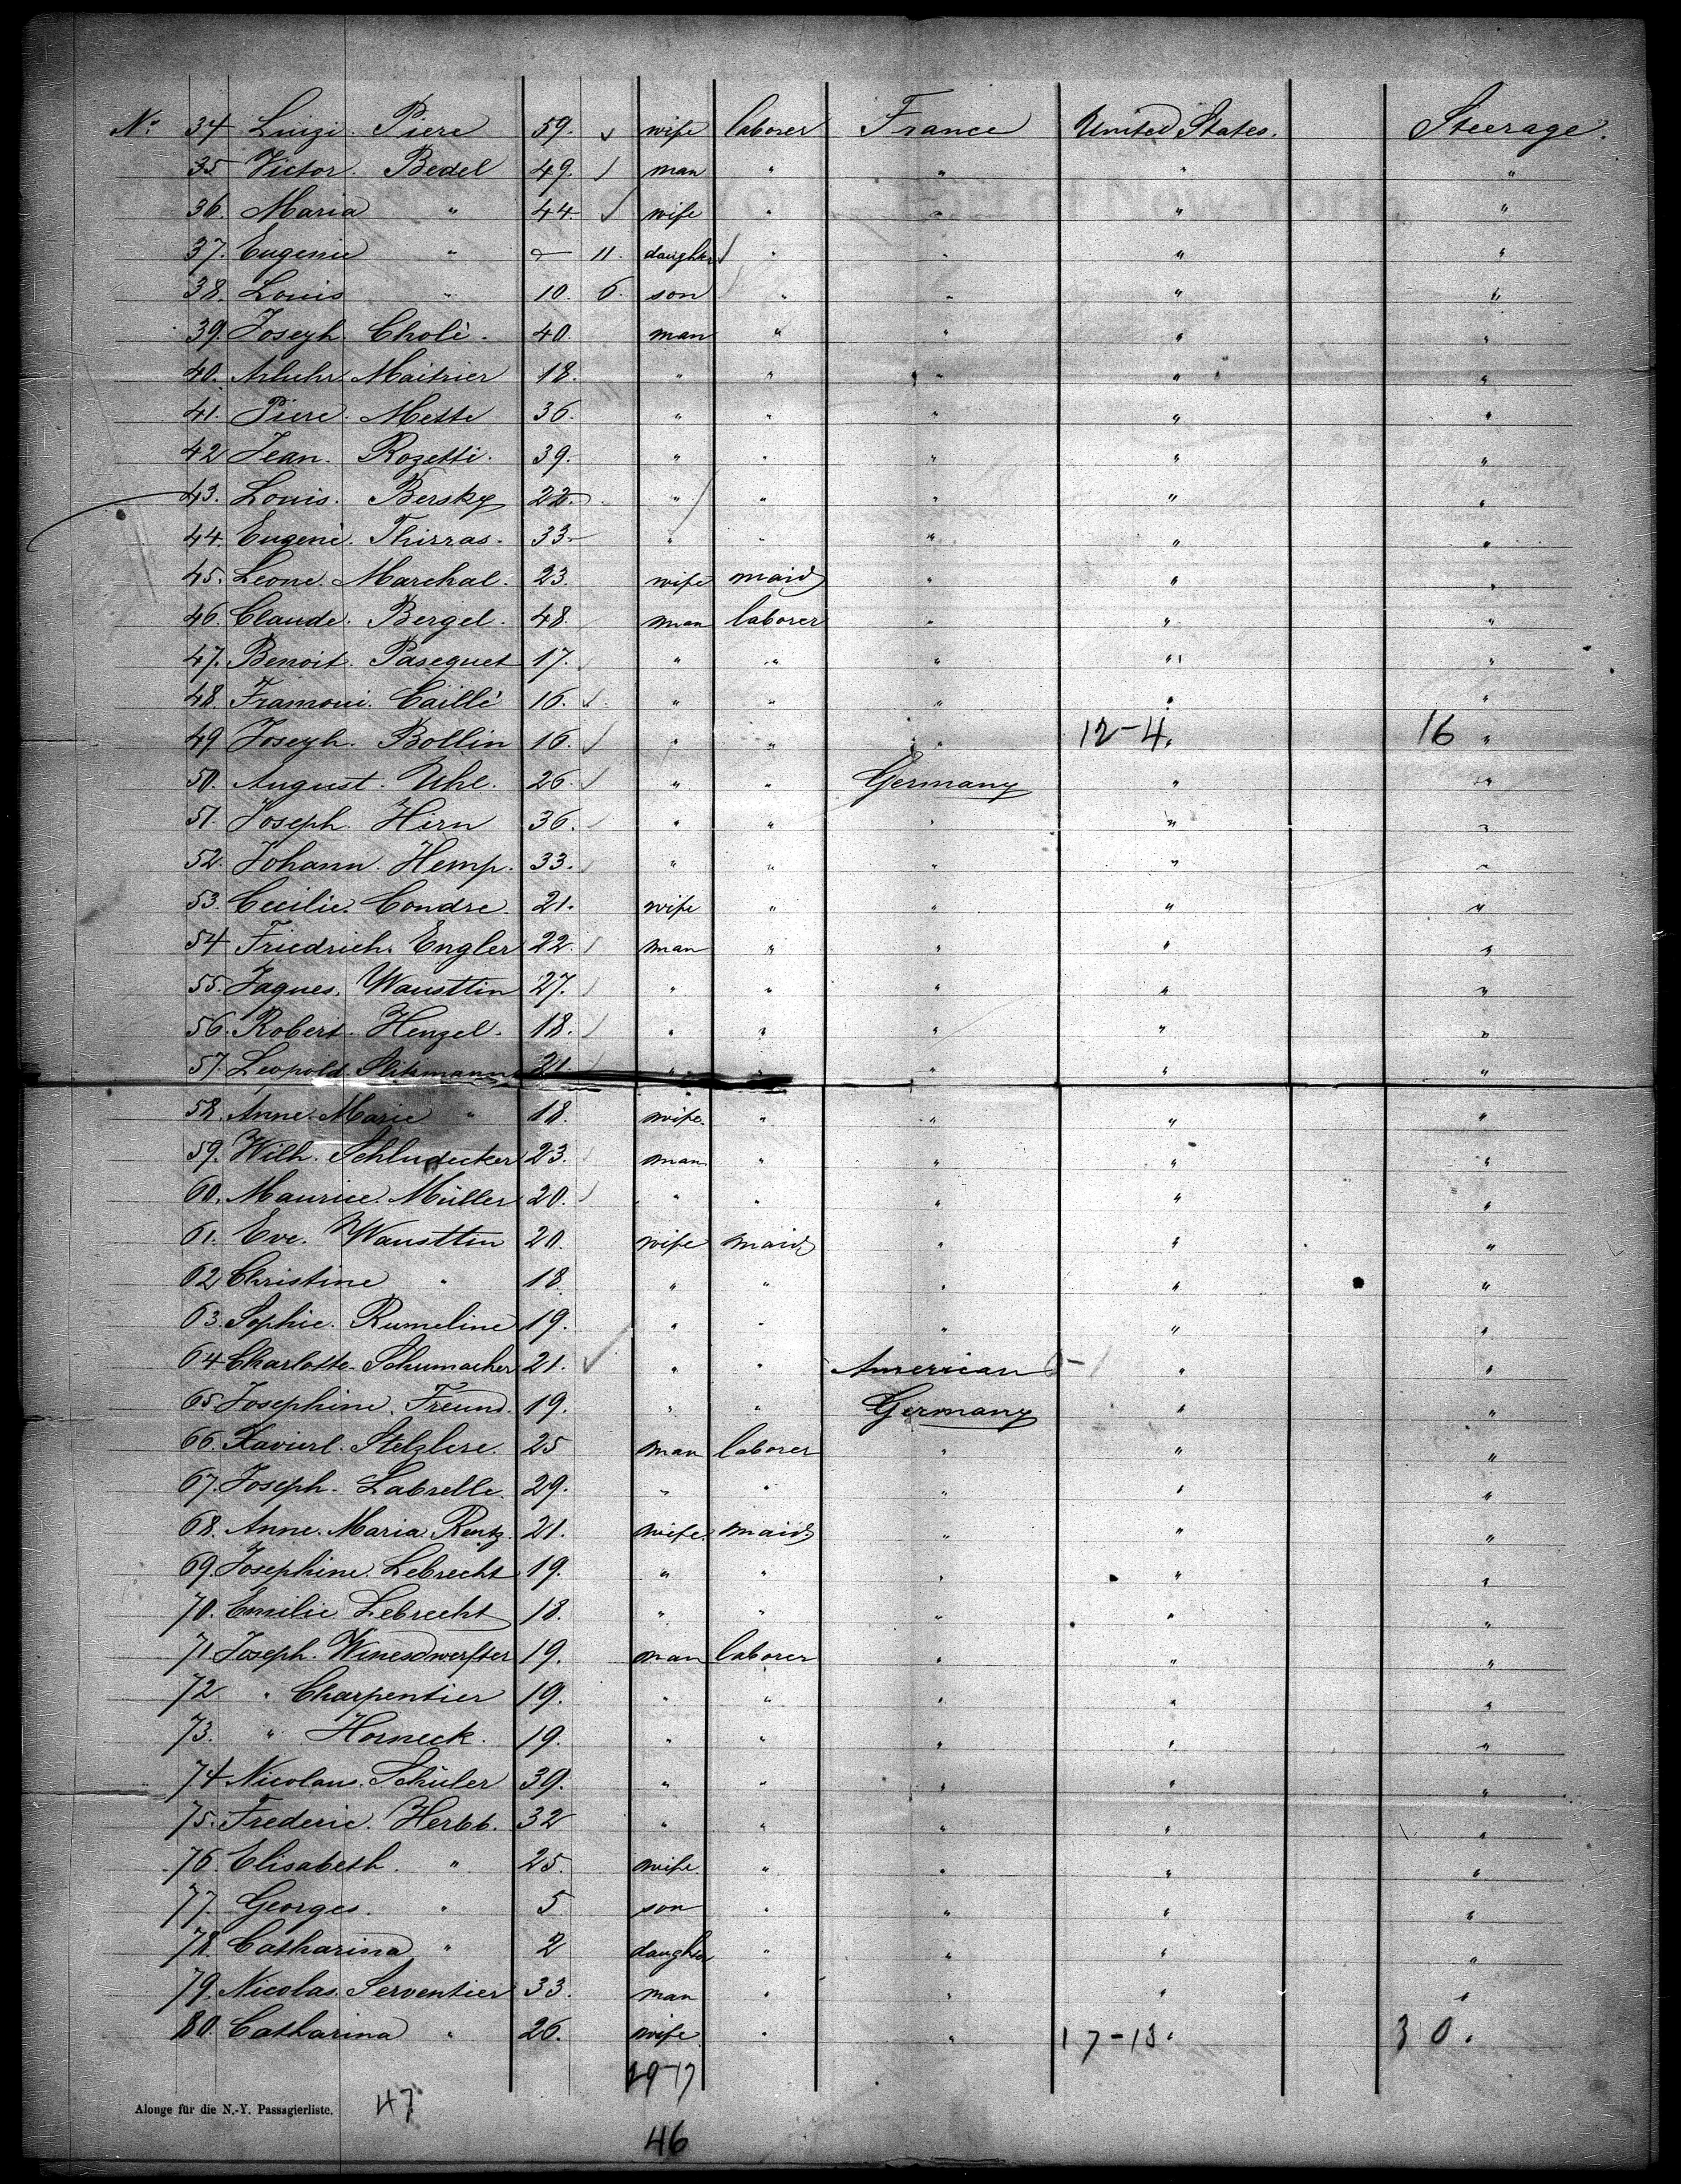 No 34 Luizi. Piere 59. wife laborer France United States. Steerage.
35 Victor. Bedel 49. man " " " "
36. Maria " 44 wife " " " "
37. Eugenie " – 11. daughter " " " "
38. Louis " 10. 6. son " " " "
39. Joseph. Cholè. 40. man " " " "
40. Arluhr. Maitrier 18. " " " " "
41. Piere. Mette 36. " " " " "
42 Jean. Rozetti. 39. " " " " "
43. Louis. Bersky 22. " " " " "
44. Eugenè. Thirras. 33. " " " " "
45. Leone. Marchal. 23. wife maid " " "
46. Claude. Bergel. 48. man laborer " " "
47. Benoit. Pasequet 17. " " " " "
48. Framoui. Caillè 16. " " " " "
49 Joseph. Bollin 16. " " " 12-4 " 16 "
50. August. Uhl. 26. " " Germany " "
51. Joseph. Hirn 36. " " " " "
52. Johann. Hemp. 33. " " " " "
53. Cecilie. Condre. 21. wife " " " "
54 Friedrich. Engler 22. man " " " "
55. Jaques. Wausttin 27. " " " " "
56. Robert. Henzel. 18. " " " " "
57. Leopold. 21. " " " " "
58. Anne. Marie " 18. wife. " " " "
59. Wilh. Schludecker 23. man " " " "
60. Maurice. Müller 20. " " " " "
61. Eve. Wausttin 20. wife maid " " "
62 Christine " 18. " " " " "
63. Sophie. Rumeline 19. " " " " "
64 Charlotte. Schumacher 21. " " American " "
65 Josephine. Freund. 19. " " Germany " "
66. Xavierl. Stelzlere. 25 man laborer " " "
67. Joseph. Labrelle. 29. " " " " "
68. Anne. Maria Rentz. 21. wife. maid. " " "
69. Josephine. Lebrecht 19. " " " " "
70. Emilie Lebrecht 18. " " " " "
71 Joseph. Winesdwerfter 19. man laborer " " "
72 " Charpentier 19. " " " " "
73. " Horneck. 19. " " " " "
74 Nicolaus. Schüler 39. " " " " "
75. Frederic. Herbb. 32 " " " " "
76. Elisabeth. " 25. wife. " " " "
77. Georges. " 5 son " " " "
78. Catharina " 2 daughter " " " "
79. Nicolas. Serventier 33. man " " " "
80. Catharina " 26. wife " " 17-13 " 30 "
29-17
Alonge für die N.-Y. Passagierliste. 47
46